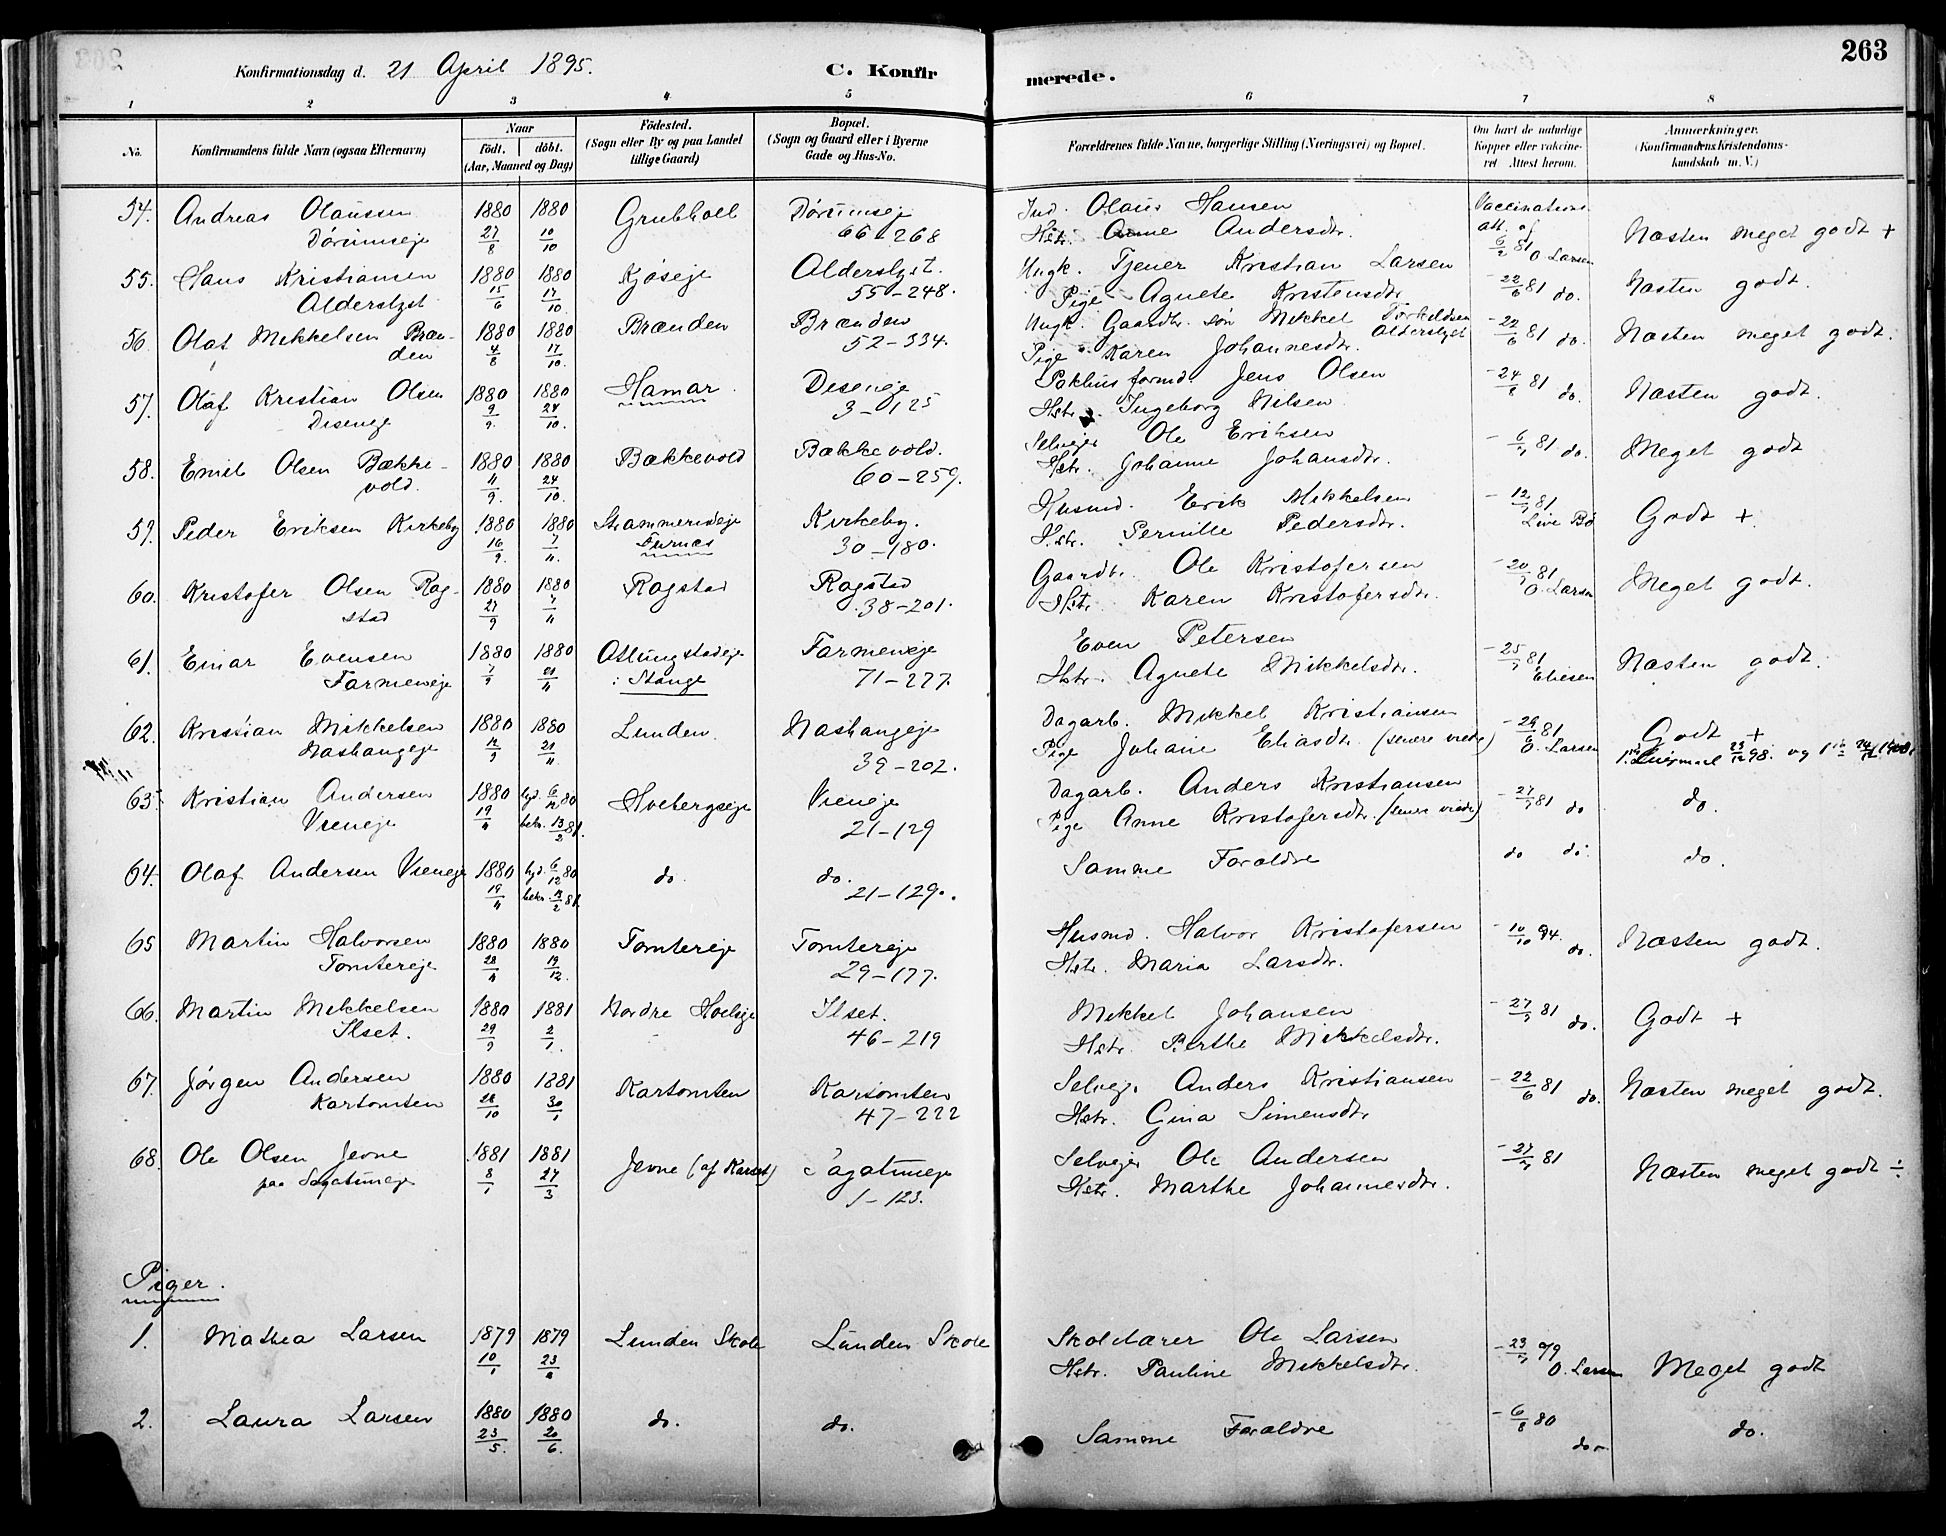 263
Konfirmationsdag d. 21 April 1895. C. Konfir merede.
1 2 3 4 5 6 7 8
No. Konfirmandens fulde Navn (ogsaa Efternavn) Naar født. døbt. (Aar, Maaned og Dag) Fødested. (Sogn eller By og paa Landet tillige Gaard) Bopæl. (Sogn og Gaard eller i Byerne Gade og Hus-No. Forældrenes fulde Navne, borgerlige Stilling (Næringsvei) og Bopæl. Om havt de naturlige Kopper eller vaccineret. Attest herom. Anmærkninger. (Konfirmandens Kristendomskundskab m. V.)
54. Andreas Olaussen 1880 1880 Grubholl Dørumseje Ind. Olaus Hansen Vaccinations
Dørumseje 27/8 10/10 66-268 Hstr. Anne Andersdtr. att. af 6/2 81 O Larsen Næsten meget godt +
55. Hans Kristiansen 1880 1880 Kjøseje Alderslyst. Ungk. Tjener Kristian Larsen
Alderslyst 15/6 17/10 55-248. Pige Agnete Kristensdtr. - 22/6 81 do. Næsten godt.
56 Olaf Mikkelsen Bræn- 1880 1880 Brænden Brænden Ungk. Gaardbr. søn Mikkel Torkildsen Alderslyst
den 4/8 17/10. 52-334. Pige Karen Johannesdtr. - 22/6 81 do. Næsten meget godt.
57. Olaf Kristian Olsen 1880 1880 Hamar Diseneje Pakhusformd. Jens Olsen
Diseneje 9/9. 24/10. 3-125 Hstr. Ingeborg Nilsen - 24/8 81 do. Næsten godt.
58. Emil Olsen Bække- 1880 1880 Bækkevold Bækkevold. Selvejer Ole Eriksen
vold. 11/9. 24/10. 60-259. Hstr. Johanne Johansdtr. - 6/7 81 do. Meget godt
59. Peder Eriksen Kirkeby 1880 1880 Kirkeby. Husmd. Erik Mikkelsen - 12/7 81
16/9. 7/11. Furnæs 30-180. Hstr. Pernille Pedersdtr. Live Bø Godt +
60. Kristofer Olsen Rog- 1880 1880 Rogstad Rogstad Gaardbr. Ole Kristofersen - 20/7 81
stad 27/9 7/11 38-201. Hstr. Karen Kristofersdtr. O. Larsen Meget godt.
61. Einar Evensen 1880 1880 Ottungstadeje Farmeneje Even Petersen - 25/7 81
Farmeneje 7/9 21/11 i Stange 71-277. Hstr. Agnete Mikkelsdtr. Eliesen Næsten godt.
62. Kristian Mikkelsen 1880 1880 Lunden. Nashangeje Dagarb. Mikkel Kristiansen - 29/6 81 Godt +
Nashangeje 12/9 21/11 39-202. Pige Johane Eliasdtr. (senere viede) O. Larsen
63. Kristian Andersen 1880 hjd. 6/12 80 Hvebergseje Vieneje Dagarb. Anders Kristiansen
Vieneje 19/11 bekr. 13/2 81. 21-129 Pige Anne Kristofersdtr. (senere viede) - 27/7 81 do do.
64. Olaf Andersen Vieneje 1880 hjd. 6/12 80 do. do. Samme Forældre do do. do.
19/11 bekr. 13/2 81. 21-129.
65 Martin Halvorsen 1880 1880 Tomtereje Tomtereje Husmd. Halvor Kristofersen - 10/10 94.
Tomtereje 28/11 19/12. 29-177. Hstr. Maria Larsdtr. do. Næsten godt.
66. Martin Mikkelsen 1880 1881 Nordre Hveleje Ilset. Mikkel Johansen - 27/7 81
Ilset. 29/9 2/1. 46-219 Hstr. Berthe Mikkelsdtr. do. Godt +
67. Jørgen Andersen 1880 1881 Kartomten Kartomten Selvejr Anders Kristiansen - 22/6 81
Kartomten 28/10 30/1 47-222 Hstr. Gina Simensdtr do. Næsten meget godt.
68. Ole Olsen Jevne 1881 1881 Jevne (af Karset) Sagatuneje Selvejer Ole Andersen - 27/7 81
paa Sagatuneje 8/1 27/3 1-123. Hstr. Marthe Johannesdtr. Næsten meget godt ÷
Piger.
1. Mathea Larsen 1879 1879 Lunden Skole Lunden Skole Skolelærer Ole Larsen - 23/7 79
10/1 23/4 Hstr. Pauline Mikkelsdtr. O. Larsen Meget godt
2. Laura Larsen 1880 1880 do. do. Samme Forældre - 6/8 80
23/5. 20/6. do. do.